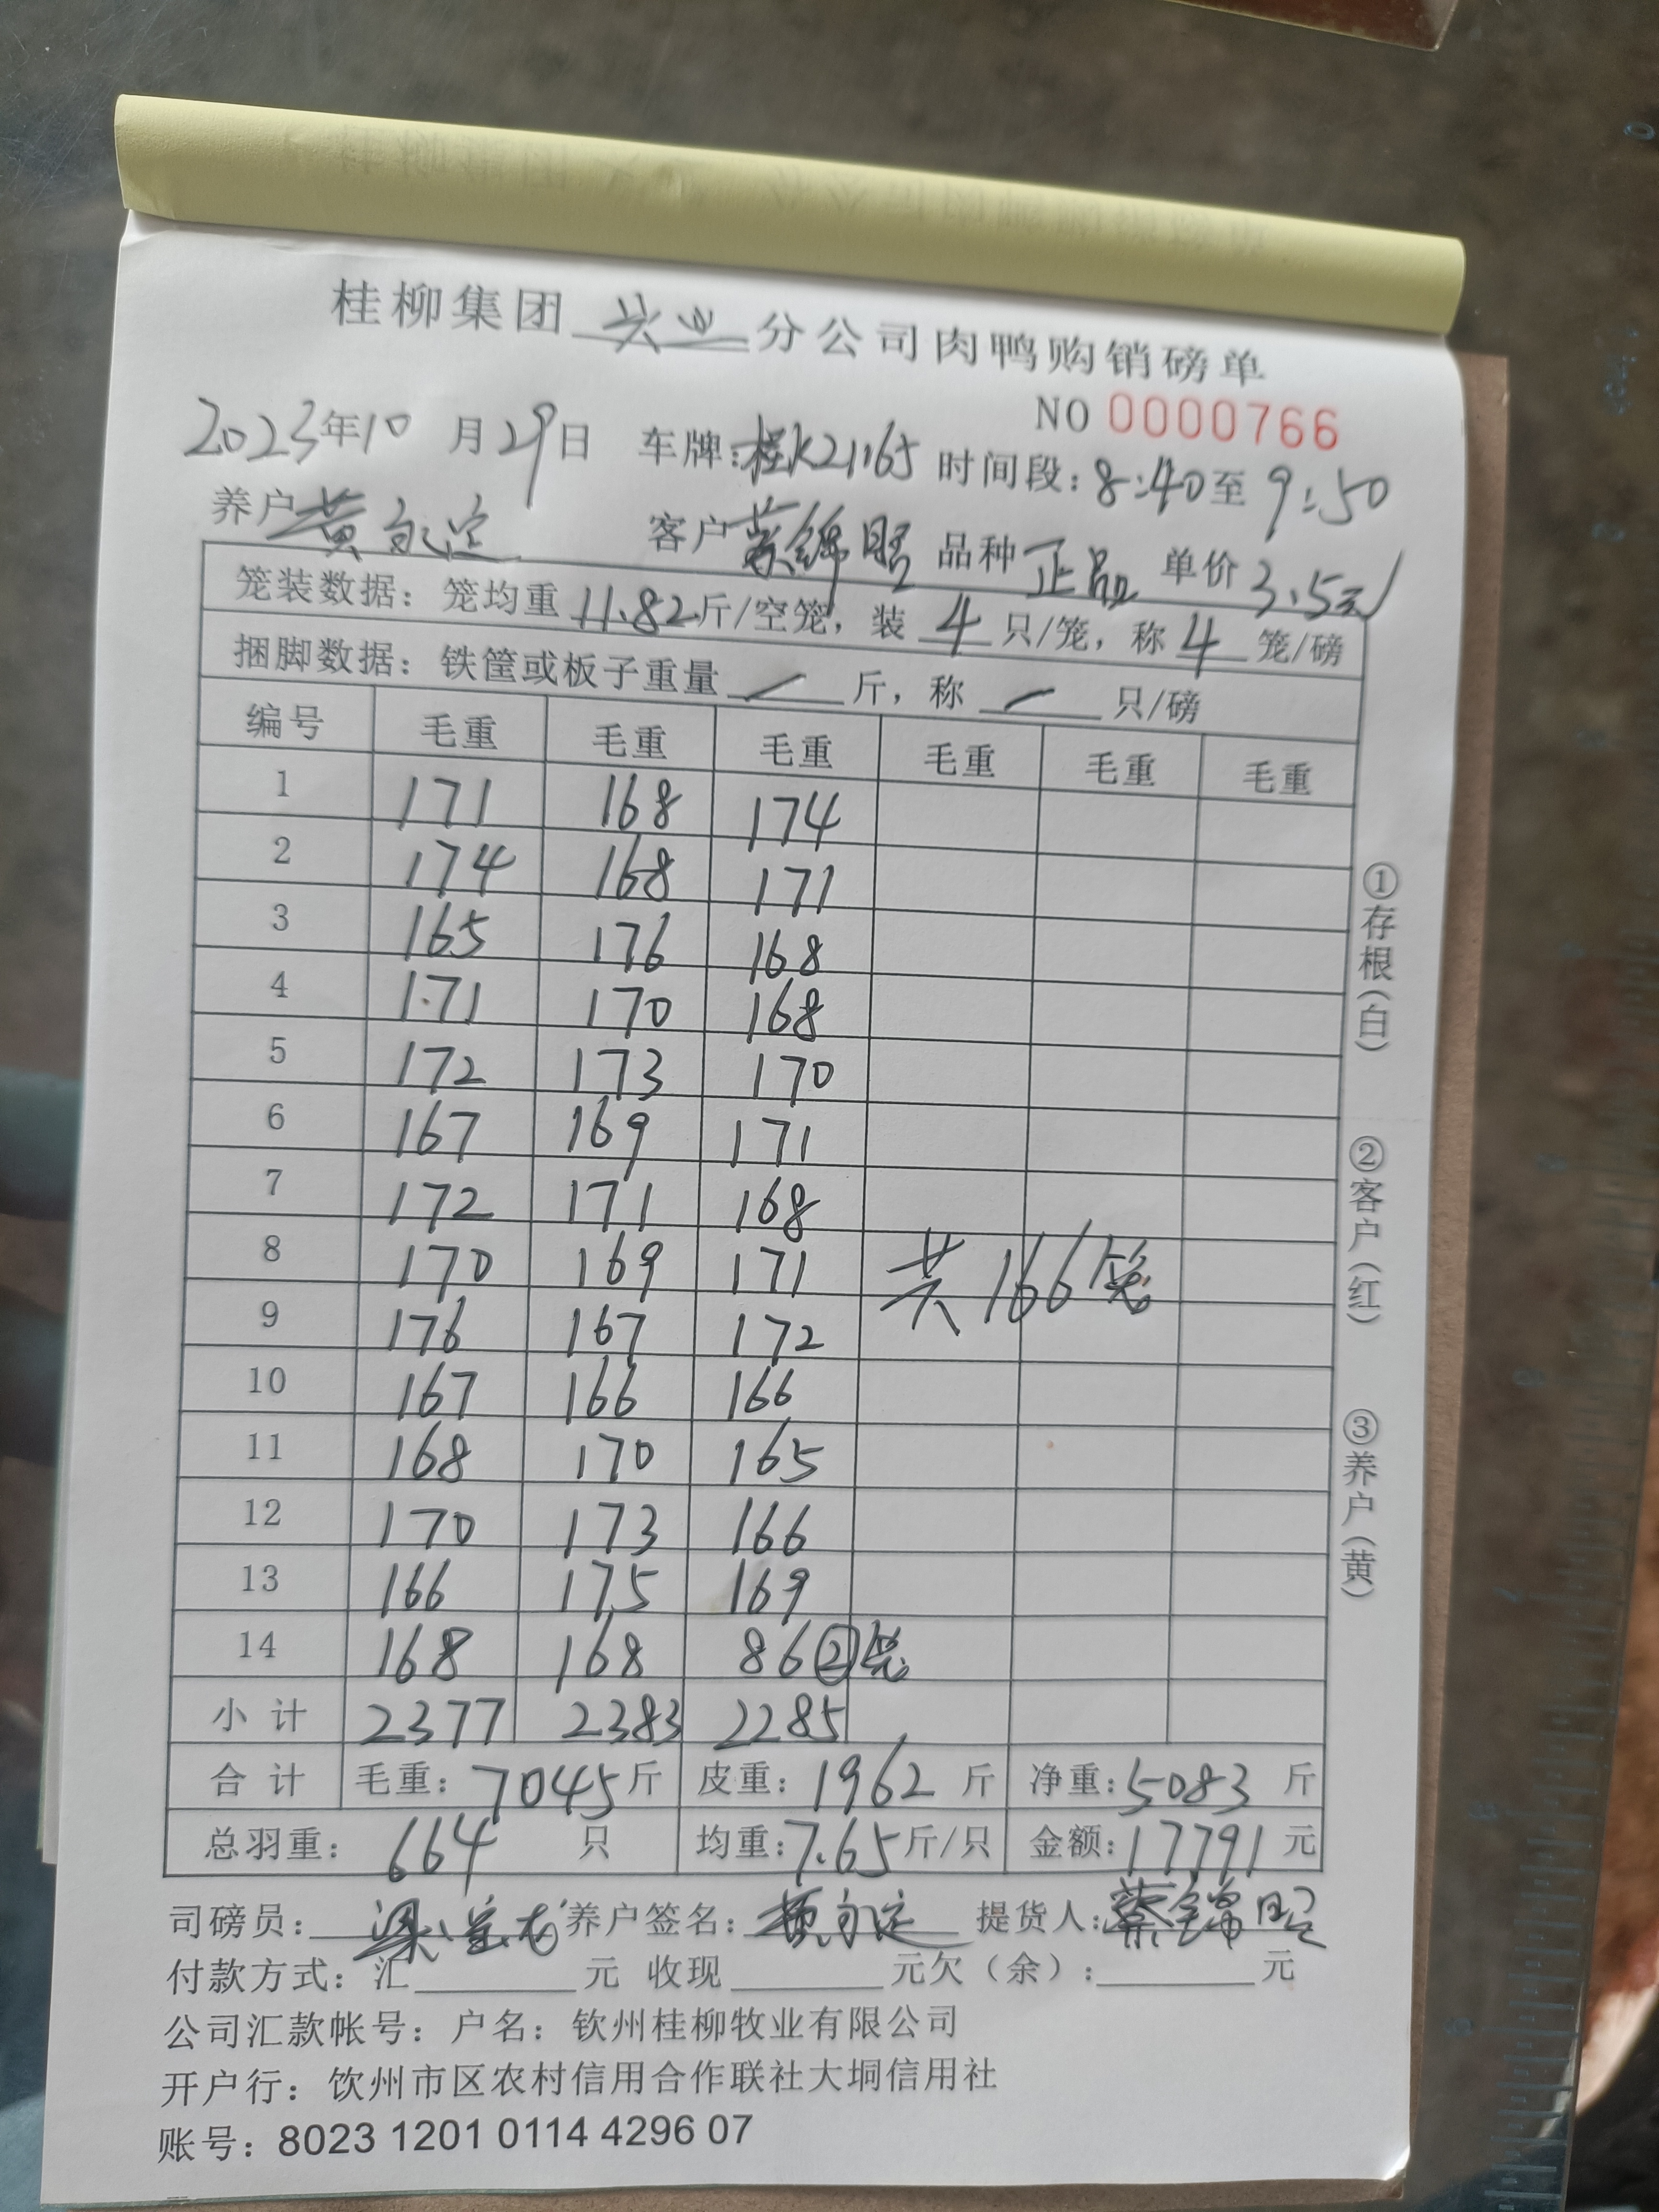 桂柳集团 兴业 分公司肉鸭购销磅单
NO 0000766
2023年10月29日 车牌:桂K21165 时间段:8:40至9:50
养户 黄 客户 蔡锦昭 品种 正品 单价 3.5元
笼装数据：笼均重 11.82 斤/空笼，装 4 只/笼，称 4 笼/磅
捆脚数据：铁筐或板子重量 / 斤，称 / 只/磅
编号 毛重 毛重 毛重 毛重 毛重 毛重
1 171 168 174
2 174 168 171
3 165 176 168
4 171 170 168
5 172 173 170
6 167 169 171
7 172 171 168
8 170 169 171 共166笼
9 176 167 172
10 167 166 166
11 168 170 165
12 170 173 166
13 166 175 169
14 168 168 86②笼
小计 2377 2383 2285
合计 毛重：7045斤 皮重：1962斤 净重：5083斤
总羽重：664只 均重：7.65斤/只 金额：17791元
司磅员：梁 养户签名：黄 提货人：蔡锦昭
付款方式：汇 元 收现 元欠（余）： 元
公司汇款帐号：户名：钦州桂柳牧业有限公司
开户行：钦州市区农村信用合作联社大垌信用社
账号：8023 1201 0114 4296 07
①存根（白）
②客户（红）
③养户（黄）